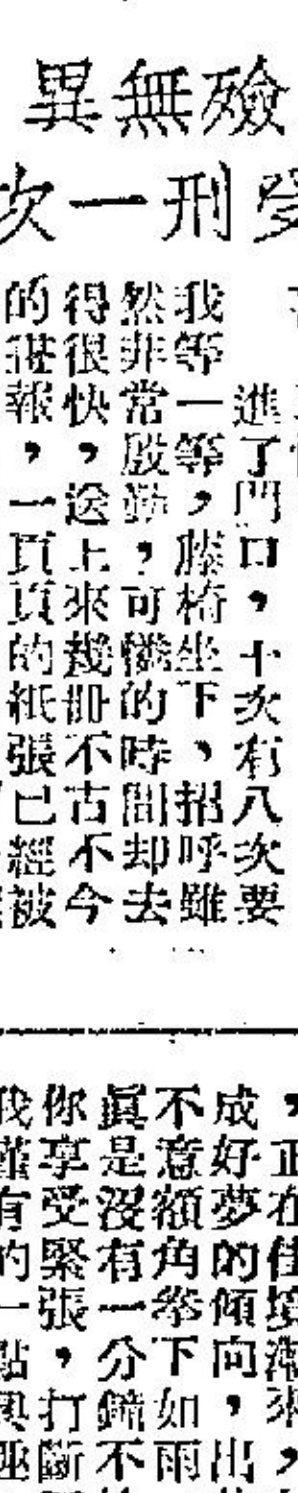 殮無異
受刑一次
進了門口，十次有八次要
我等一等，藤椅坐下、招呼雖
然非常殷勤，可憐的時間却去
得很快，送上來幾冊不古不今
的報，一頁頁的紙張已經被
，正在佳境漸來，
成好夢的傾向，出
不意額角拳下如雨
眞是沒有一分鐘不
你享受緊張，打斷
我僅有的一點興趣